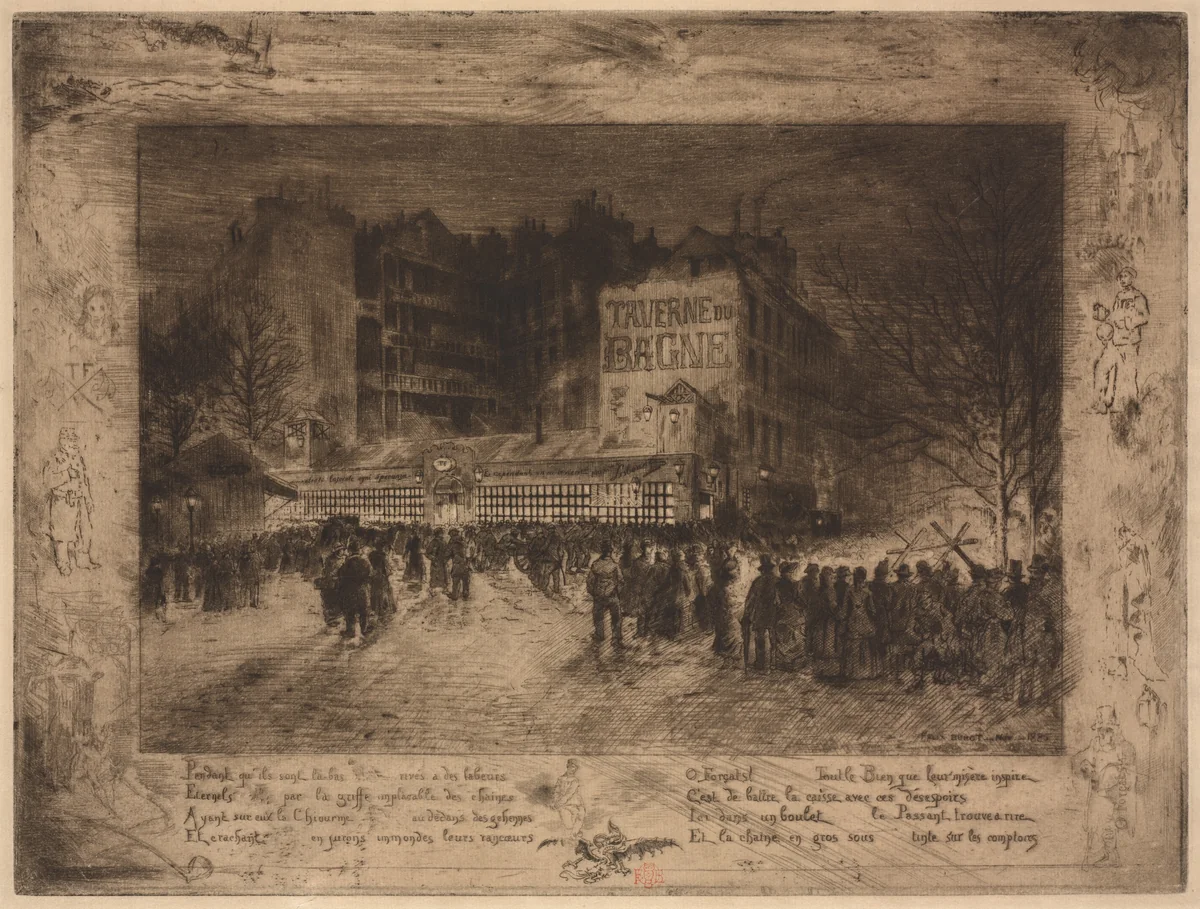 TAVERNE DU
BAGNE
TF
FELIX BUHOT
Pendant qu'ils sont là-bas rivés a des labeurs
Eternels par la griffe implacable des chaines
Ayant sur eux la Chiourme au dedans des gehennes
Et crachant en jurons immondes leurs rancœurs
O Forçats! Tout le Bien que leur misère inspire
C'est de battre la caisse avec ces désespoirs
Ici dans un boulet le Passant trouve a rire
Et la chaîne en gros sous tinte sur les comptoirs